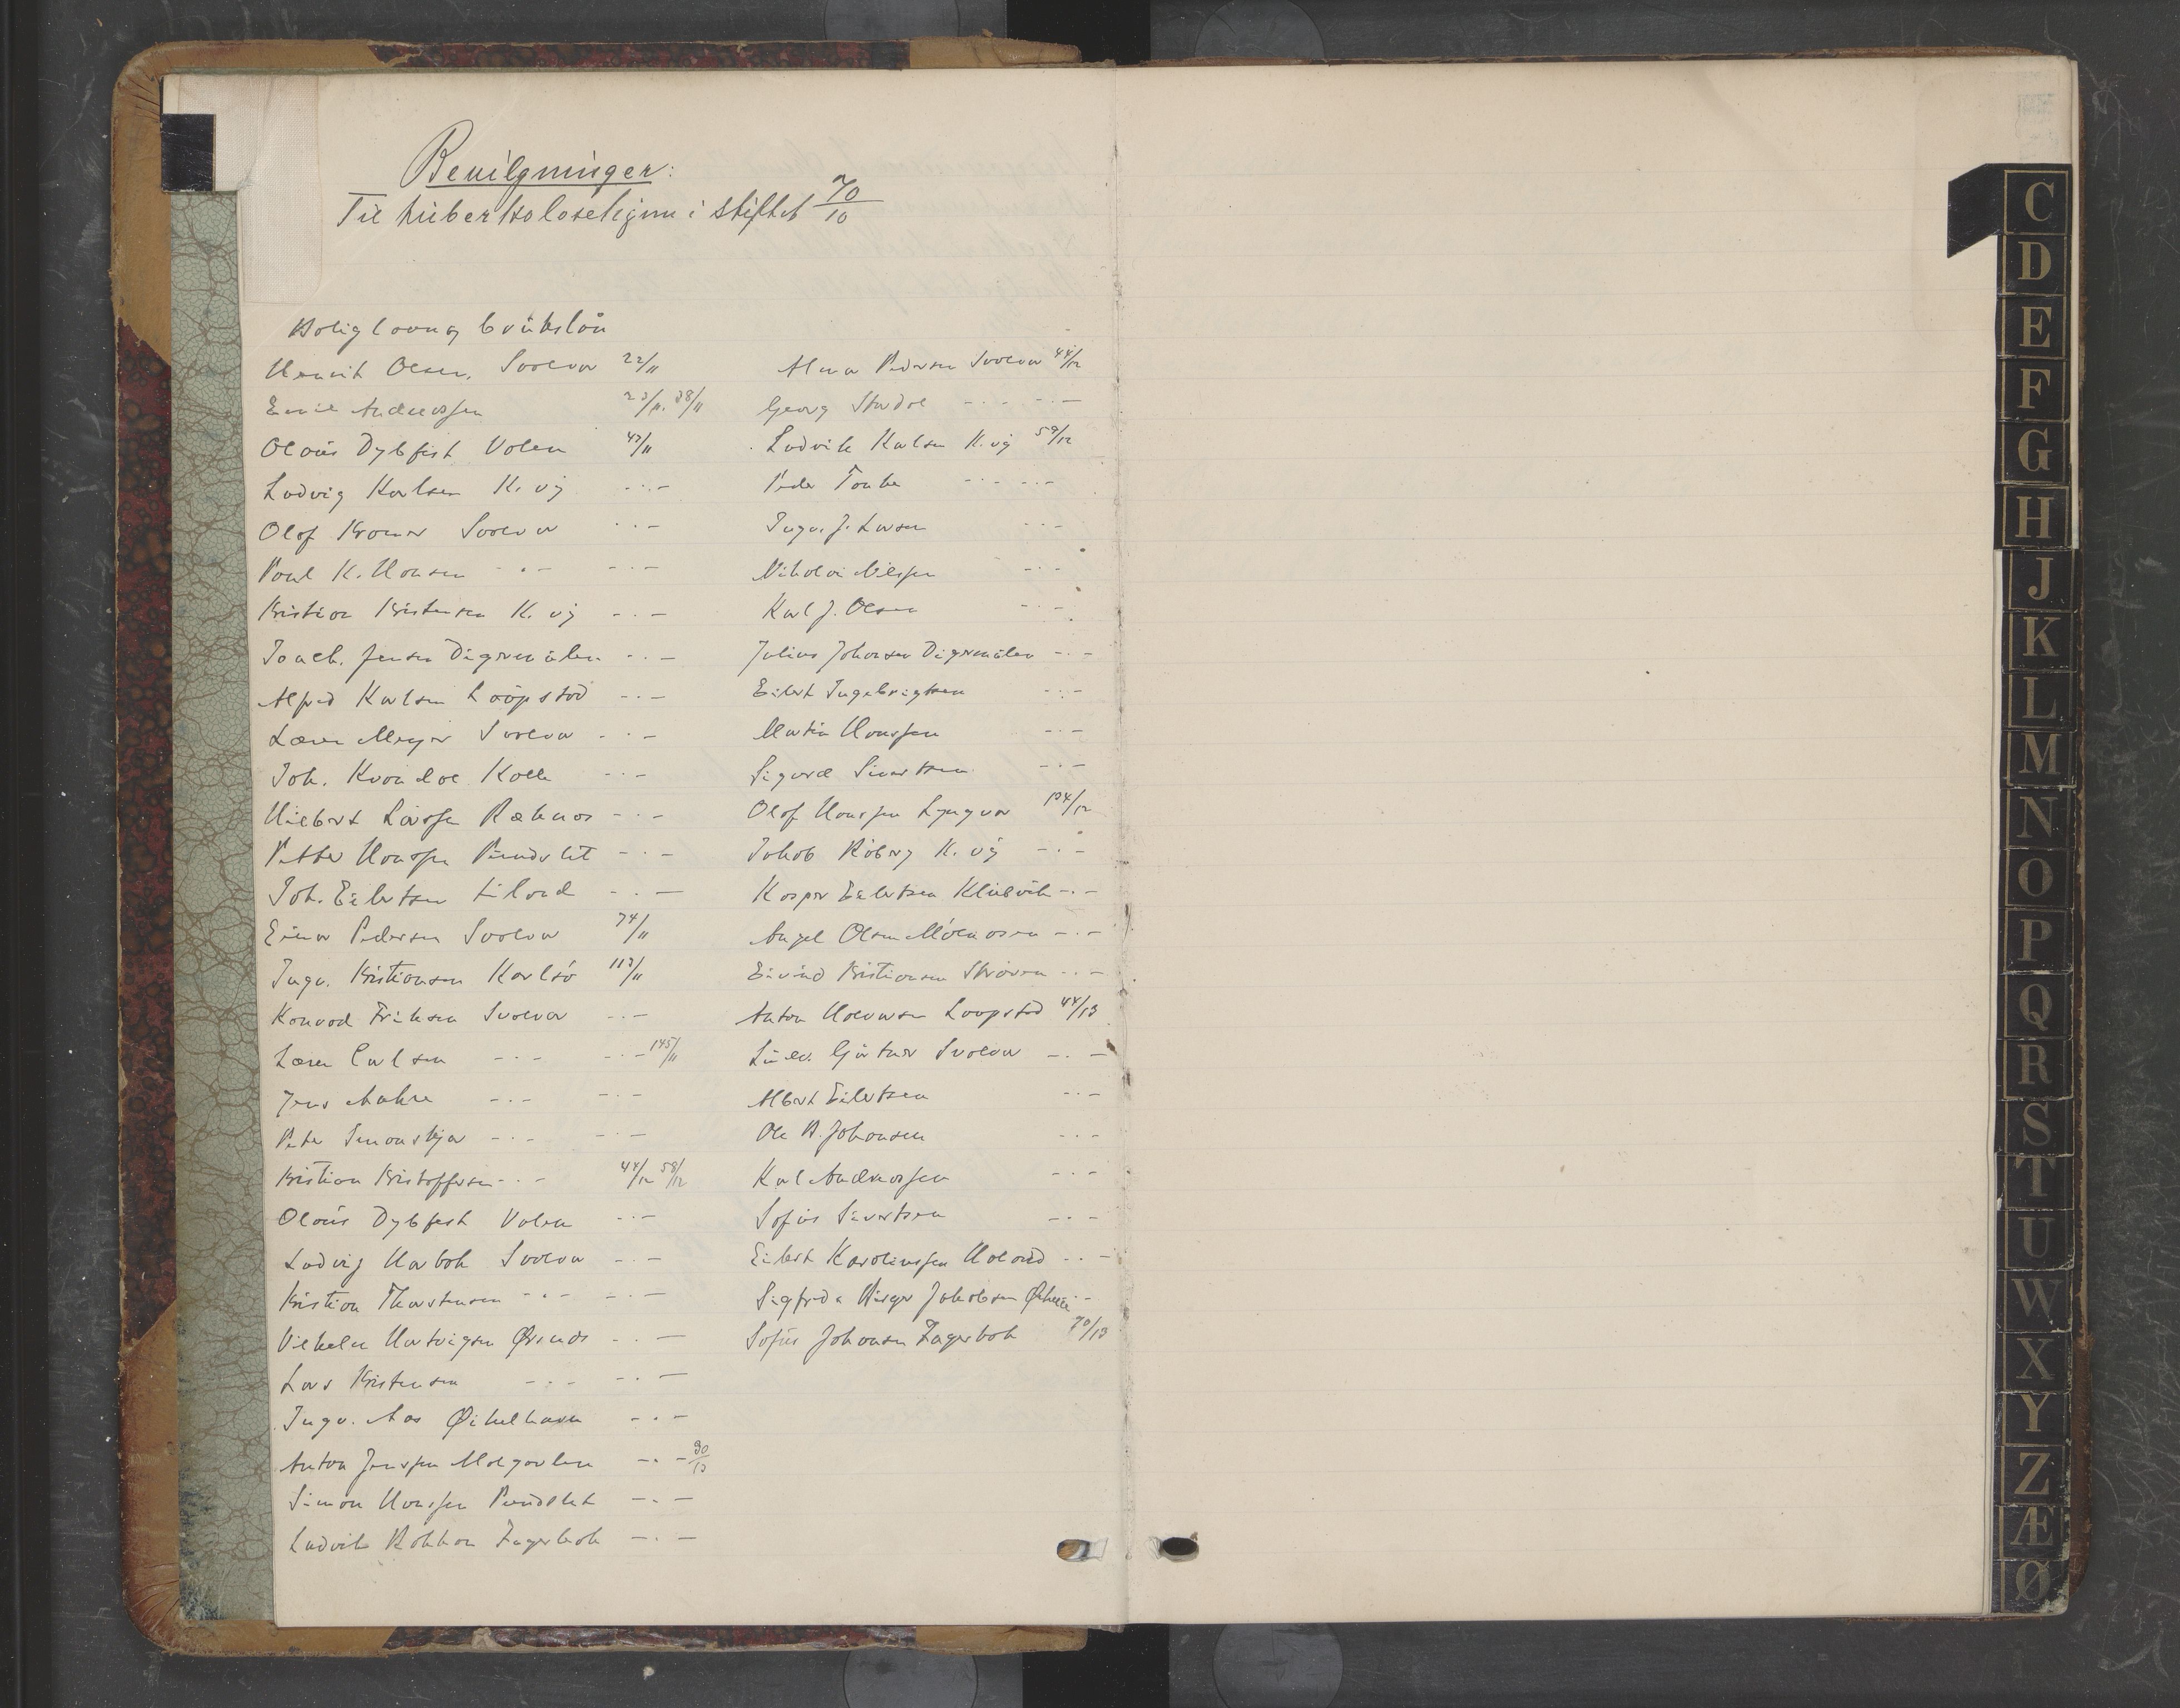 Bevilgninger:
Til tuberkuloselegun i stiftet 70/10
Boliglaan og brukslån
Henrik Olsen, Svolvær 22/11
Emil Andreassen 23/11. 38/11
Olaus Dybfest Volen 43/11
Ludvig Karlsen K. våg -.-
Olaf Kromer Svolvær -.-
Paul K. Hansen -.- -.-
Kristian Kristensen K. våg -.-
Joach. Jensen Digermulen -.-
Alfred Karlsen Laupstad -.-
Lærer Meyer Svolvær -.-
Joh. Kvandal Kalle -.-
Hilbert LarssenRæknes -.-
Petter Hanssen Pundslet -.-
Joh. Eilertsen Liland -.-
Einar Pedersen Svolvær 74/11
Ingv. Kristiansen Karlsö 113/11
Konrad Eriksen Svolvær -.-
Lærer Carlsen -.- -.- 145/11
Jens Aakre -.- -.-
Peter Simonskjær -.- -.-
Kristian Kristoffersen -.- 44/12 58/12
Olaus Dybfest Volen -.-
Ludvig Harboh Svolvær -.-
Kristian Thorstensen -.- -.-
Vilhelm Hartvigsen Ørsnes -.-
Lars Kristensen -.- -.-
Ingv. Aas Øihelhavn -.-
Anton Jenssen Molgavlen -.- 30/13
Simon Hanssen Pundslet -.-
Ludvik Bakkan Fagerbak -.-
Alma Pedersen Svolvær 44/12
Georg Stadel -.- -.-
Ludvik Karlsen K. våg 59/12
Peder Tanke -.- -.-
Ingv. J. Larsen -.-
Nikolai Nilssen -.-
Karl J. Olsen -.-
Julius Johansen Digermulen -.-
Eilert Ingebrigtsen -.-
Martin Hanssen -.-
Sigurd Sivertsen -.-
Olaf Hanssen Lyngvær 124/12
Jakob Råberg K. våg -.-
Kasper Eilertsen Kleivik -.-
Angel Olsen Molnosen -.-
Eivind Kristiansen Skroven -.-
Anton Halvorsen Laupstad 44/13
Gårtner Svolvær -.-
Albert Eilertsen -.-
Ole B. Johansen -.-
Karl Andreassen -.-
Sofus Sivertsen -.-
Eilert Karolinssen Holand -.-
Sigfrid Jakobsen -.-
Sofus Johansen Fagerbak 70/13
C
D
E
F
G
H
J
K
L
M
N
O
P
Q
R
S
T
U
W
X
Y
Z
Æ
Ø